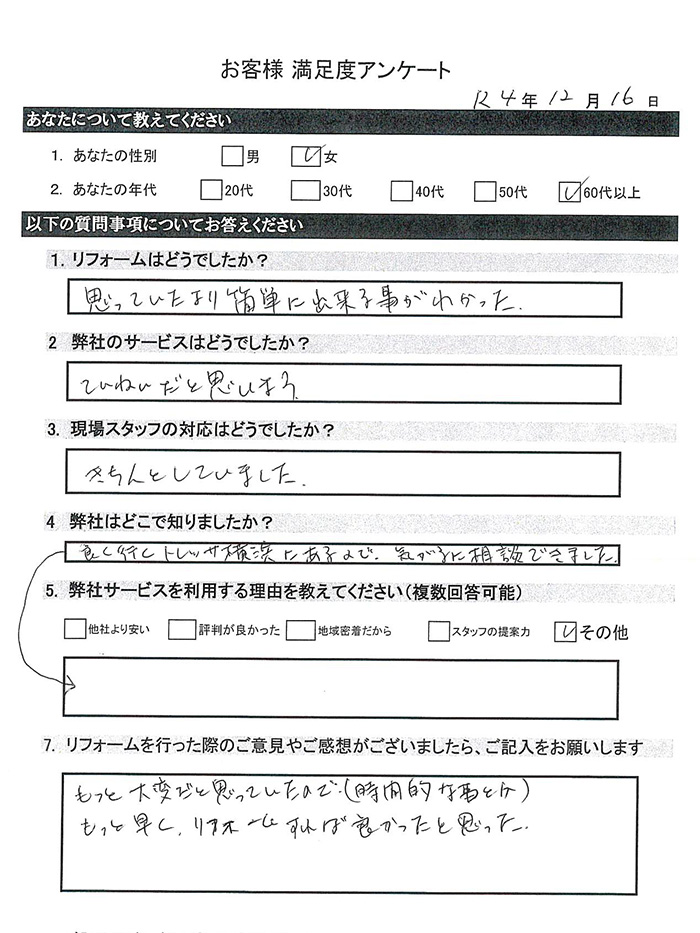 お客様 満足度アンケート
R4年12月16日
あなたについて教えてください
1. あなたの性別 男 女
2. あなたの年代 20代 30代 40代 50代 60代以上
以下の質問事項についてお答えください
1. リフォームはどうでしたか？
思っていたより簡単に出来る事がわかった.
2 弊社のサービスはどうでしたか？
ていねいだと思います
3. 現場スタッフの対応はどうでしたか？
きちんとしていました.
4 弊社はどこで知りましたか？
良く行くトレッサ横浜にあるので、気がるに相談できました.
5. 弊社サービスを利用する理由を教えてください（複数回答可能）
他社より安い 評判が良かった 地域密着だから スタッフの提案力 その他
7. リフォームを行った際のご意見やご感想がございましたら、ご記入をお願いします
もっと大変だと思っていたので.(時間的な事とか)
もっと早く、リフォームすれば良かったと思った.